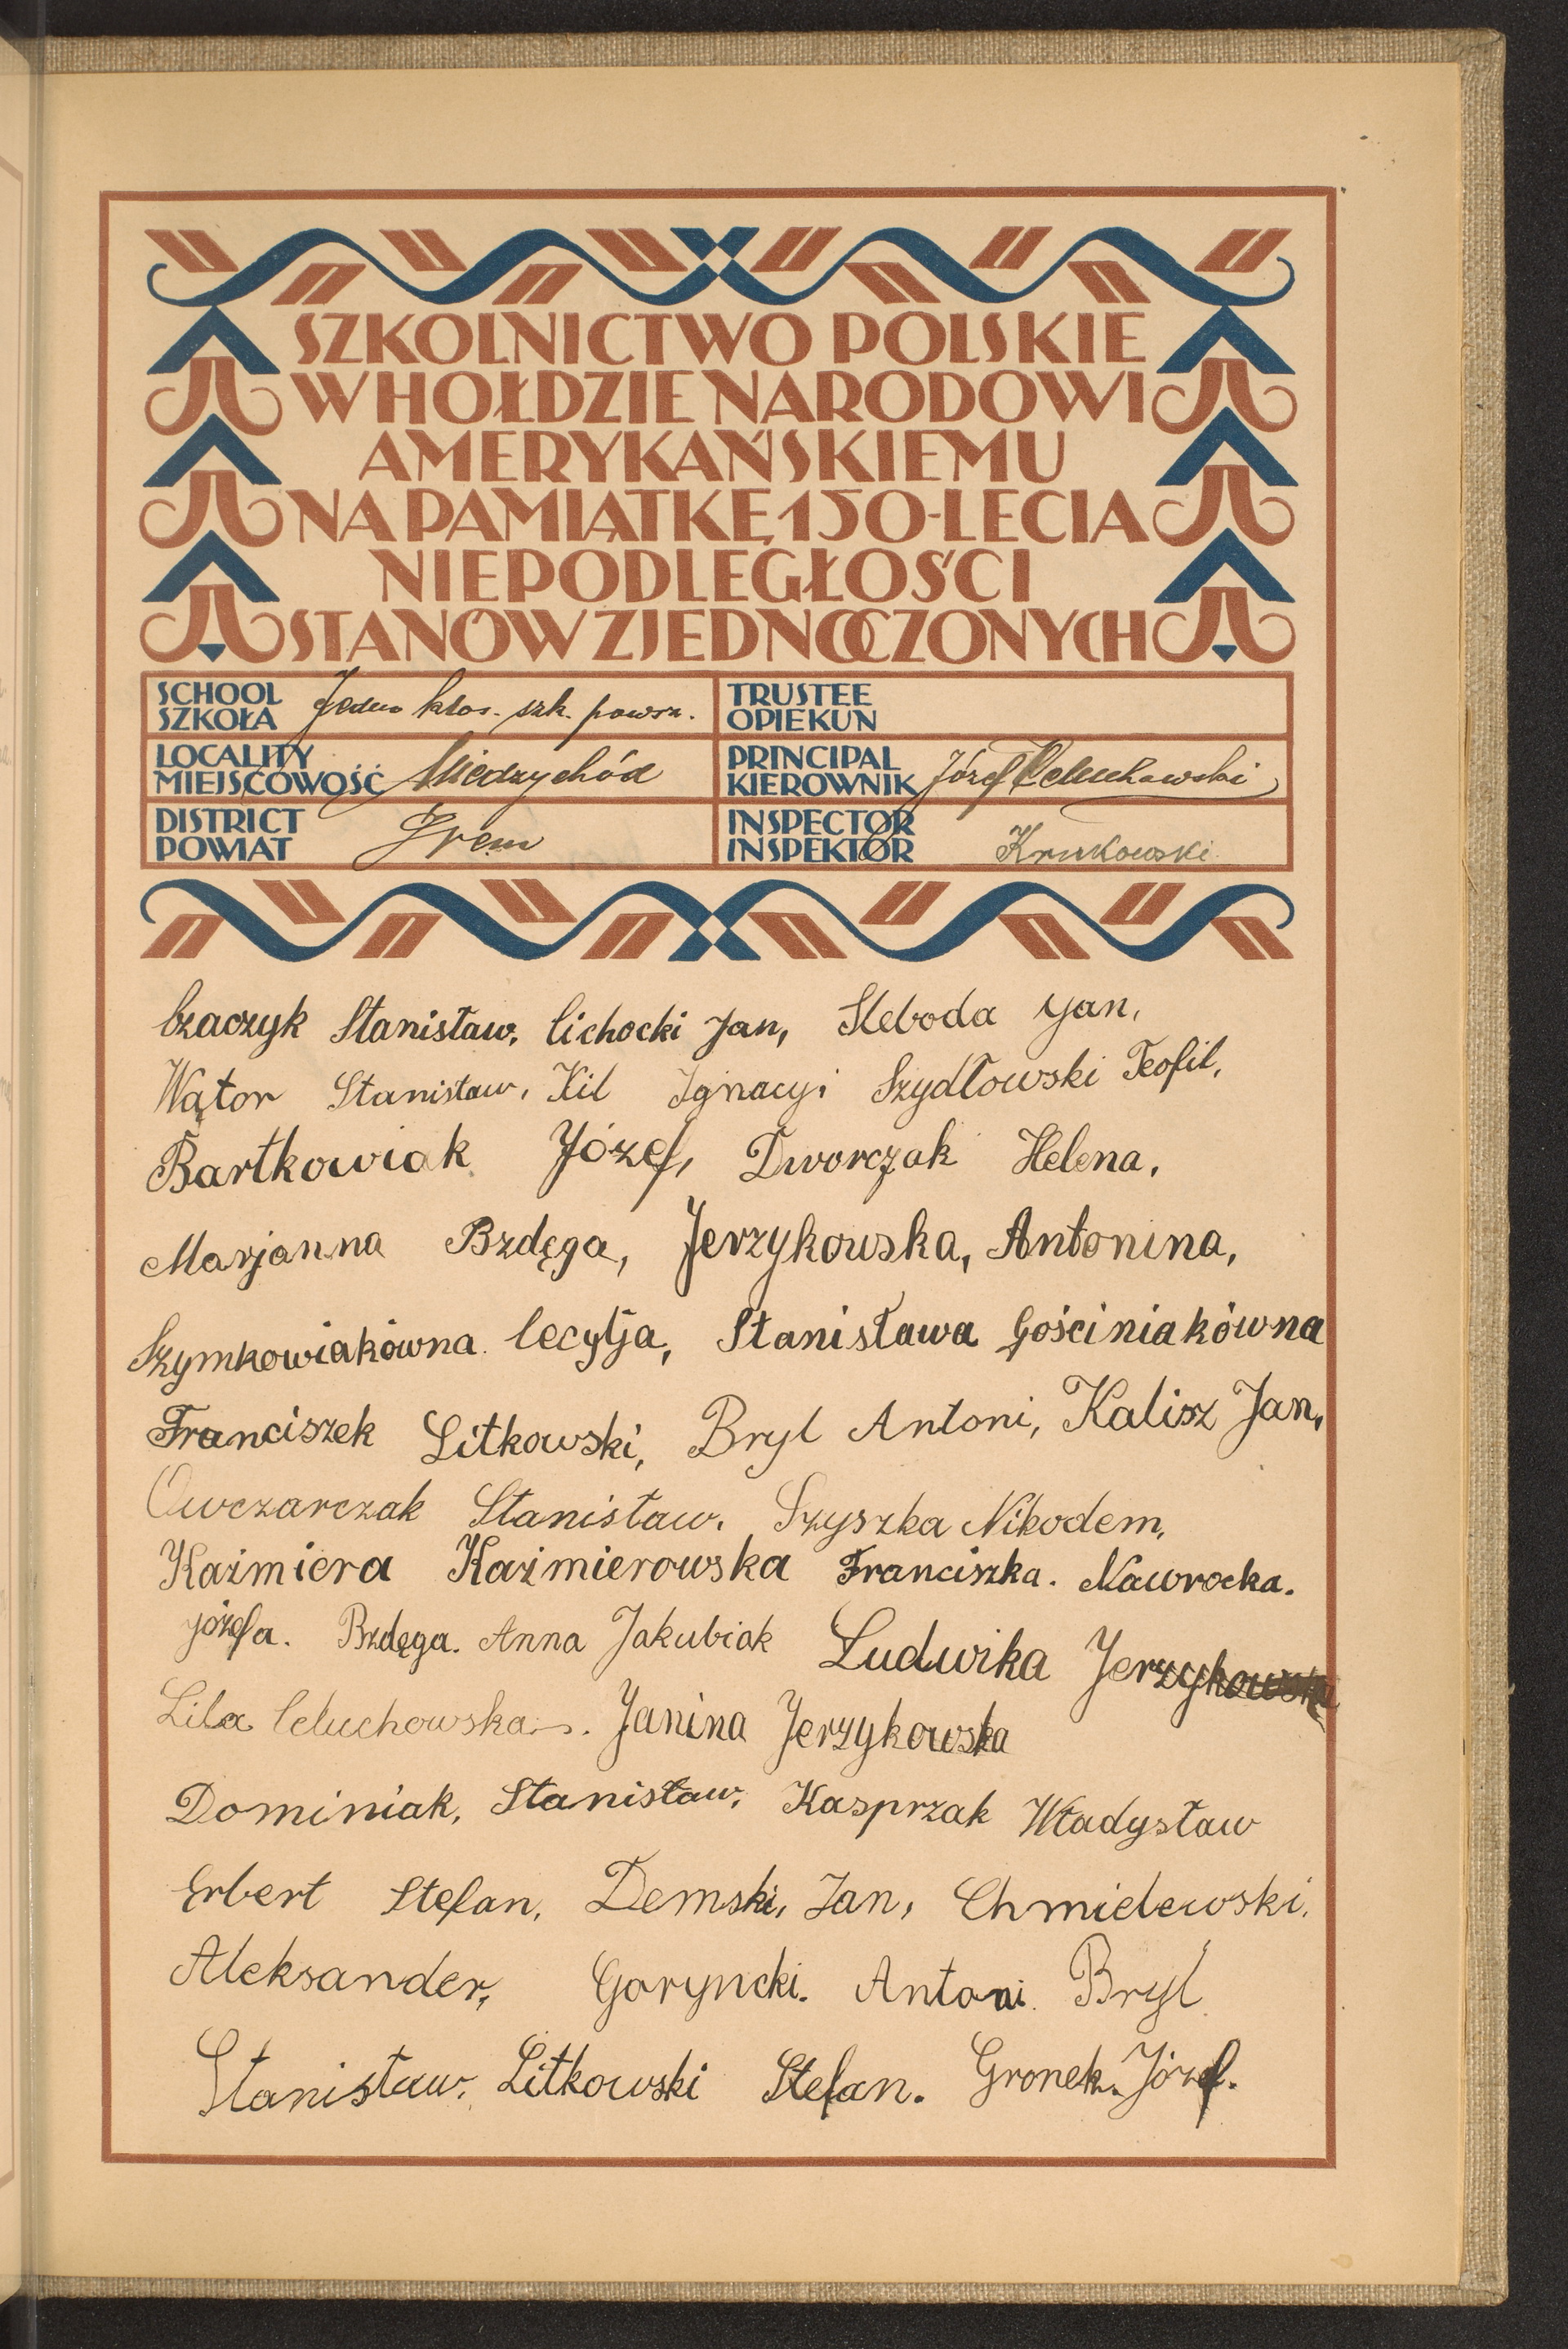 SZKOLNICTWO POLSKIE
W HOŁDZIE NARODOWI
AMERYKAŃSKIEMU
NA PAMIĄTKĘ 150-LECIA
NIEPODLEGŁOŚCI
STANÓW ZJEDNOCZONYCH
SCHOOL
SZKOŁA Jedno klas. szk. powsz.
TRUSTEE
OPIEKUN
LOCALITY
MIEJSCOWOŚĆ Miedzychód
PRINCIPAL
KIEROWNIK Józef Celuchowski
DISTRICT
POWIAT Śrem
INSPECTOR
INSPEKTOR Krukowski
Czaczyk Stanisław, Cichocki Jan, Sleboda Jan,
Wątor Stanisław, Kil Ignacy, Szydłowski Teofil,
Bartkowiak Józef, Dworczak Helena,
Marjanna Bzdęga, Jerzykowska, Antonina,
Szymkowiakówna Cecylja, Stanisława Gościniakówna
Franciszek Litkowski, Bryl Antoni, Kalisz Jan,
Owczarczak Stanisław. Szyszka Nikodem,
Kaźmiera Kaźmierowska Franciszka. Nawrocka.
Józefa. Bzdęga. Anna Jakubiak Ludwika Jerzykowska
Lila Celuchowska. Janina Jerzykowska
Dominiak, Stanisław, Kasprzak Władysław
Erbert Stefan, Demski, Jan, Chmielewski,
Aleksander, Goryncki. Antoni Bryl
Stanisław, Litkowski Stefan. Gronek. Józef.